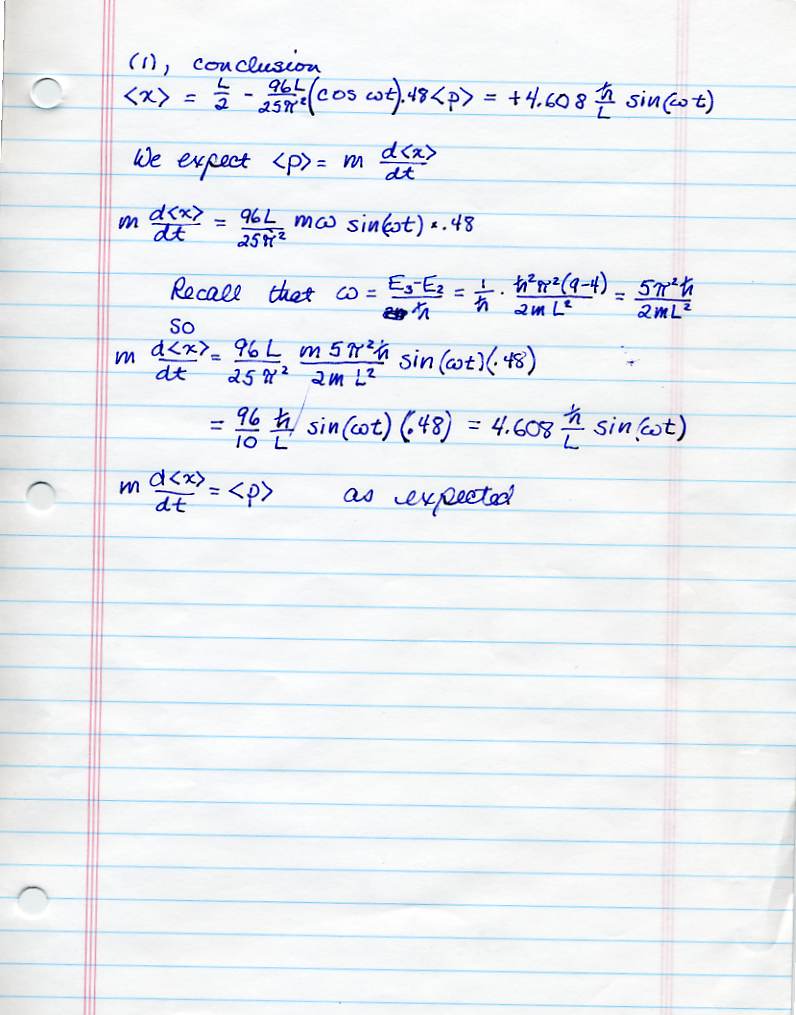 (1), conclusion
<x> = L/2 - 96L/25π² (cos ωt).48 <p> = +4.608 ħ/L sin(ωt)
We expect <p> = m d<x>/dt
m d<x>/dt = 96L/25π² mω sin(ωt) * .48
Recall that ω = E₃-E₂/ħ = 1/ħ · ħ²π²(9-4)/2mL² = 5π²ħ/2mL²
So
m d<x>/dt = 96L/25π² m5π²ħ/2mL² sin(ωt)(.48)
= 96/10 ħ/L sin(ωt) (.48) = 4.608 ħ/L sin(ωt)
m d<x>/dt = <p> as expected